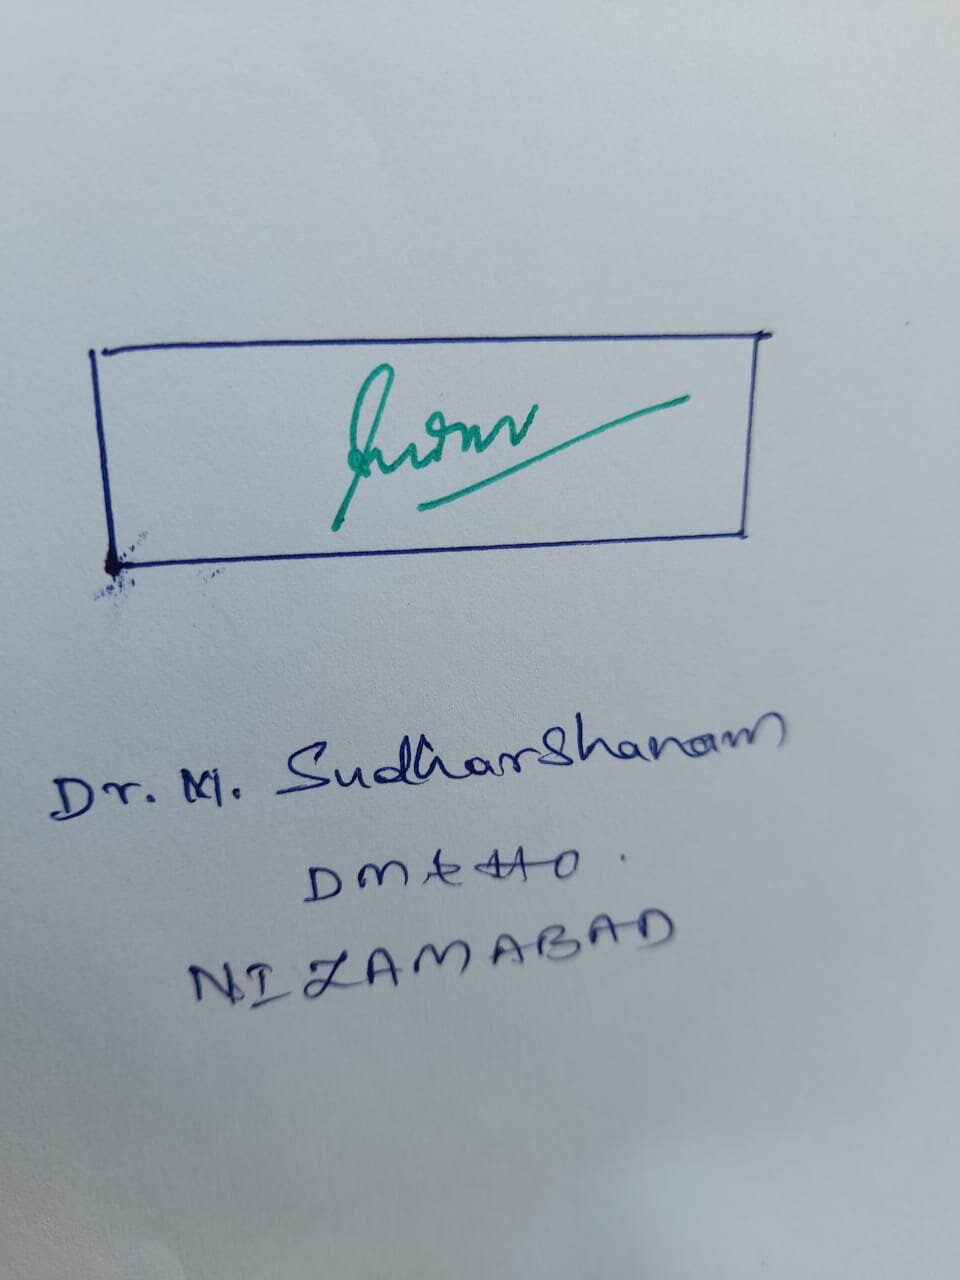 Dr. M. Sudharshanam
DM & HO.
NIZAMABAD